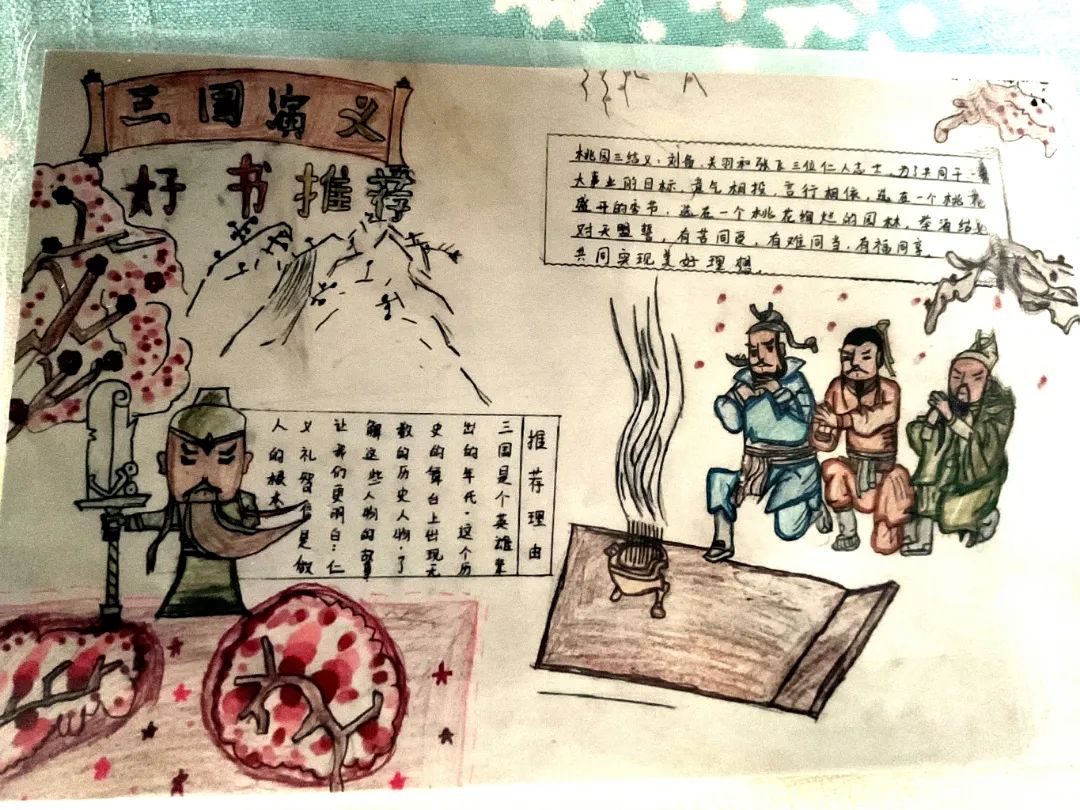 三国演义
好书推荐
桃园三结义：刘备、关羽和张飞三位仁人志士，为了共同干一番
大事业的目标，意气相投，言行相依，选在一个桃花
盛开的季节，选在一个桃花绚烂的园林，举酒结义
对天盟誓，有苦同受，有难同当，有福同享，
共同实现美好理想。
推荐理由
三国是个英雄辈
出的年代。这个历
史的舞台上出现无
数的历史人物，了
解这些人物的故事
让我们更明白：仁
义礼智信是做
人的根本